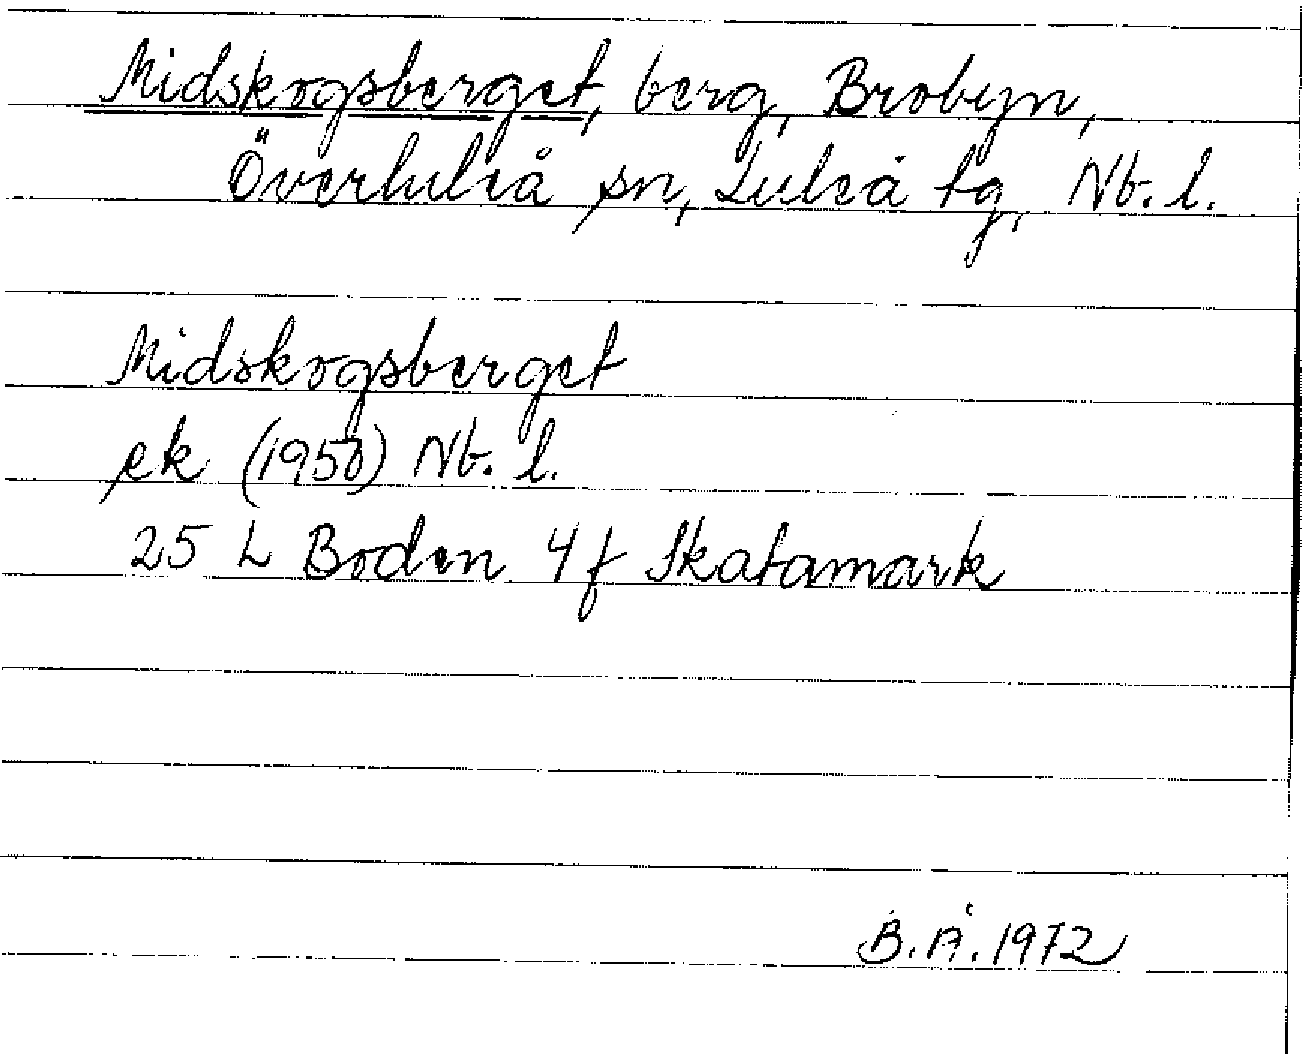 Midskogsberget, berg, Brobyn,
Överluleå sn, Luleå tg, Nb. l.
Midskogsberget
ek (1958) Nb. l.
25 L Boden 4 f Skatamark
B.Å. 1972